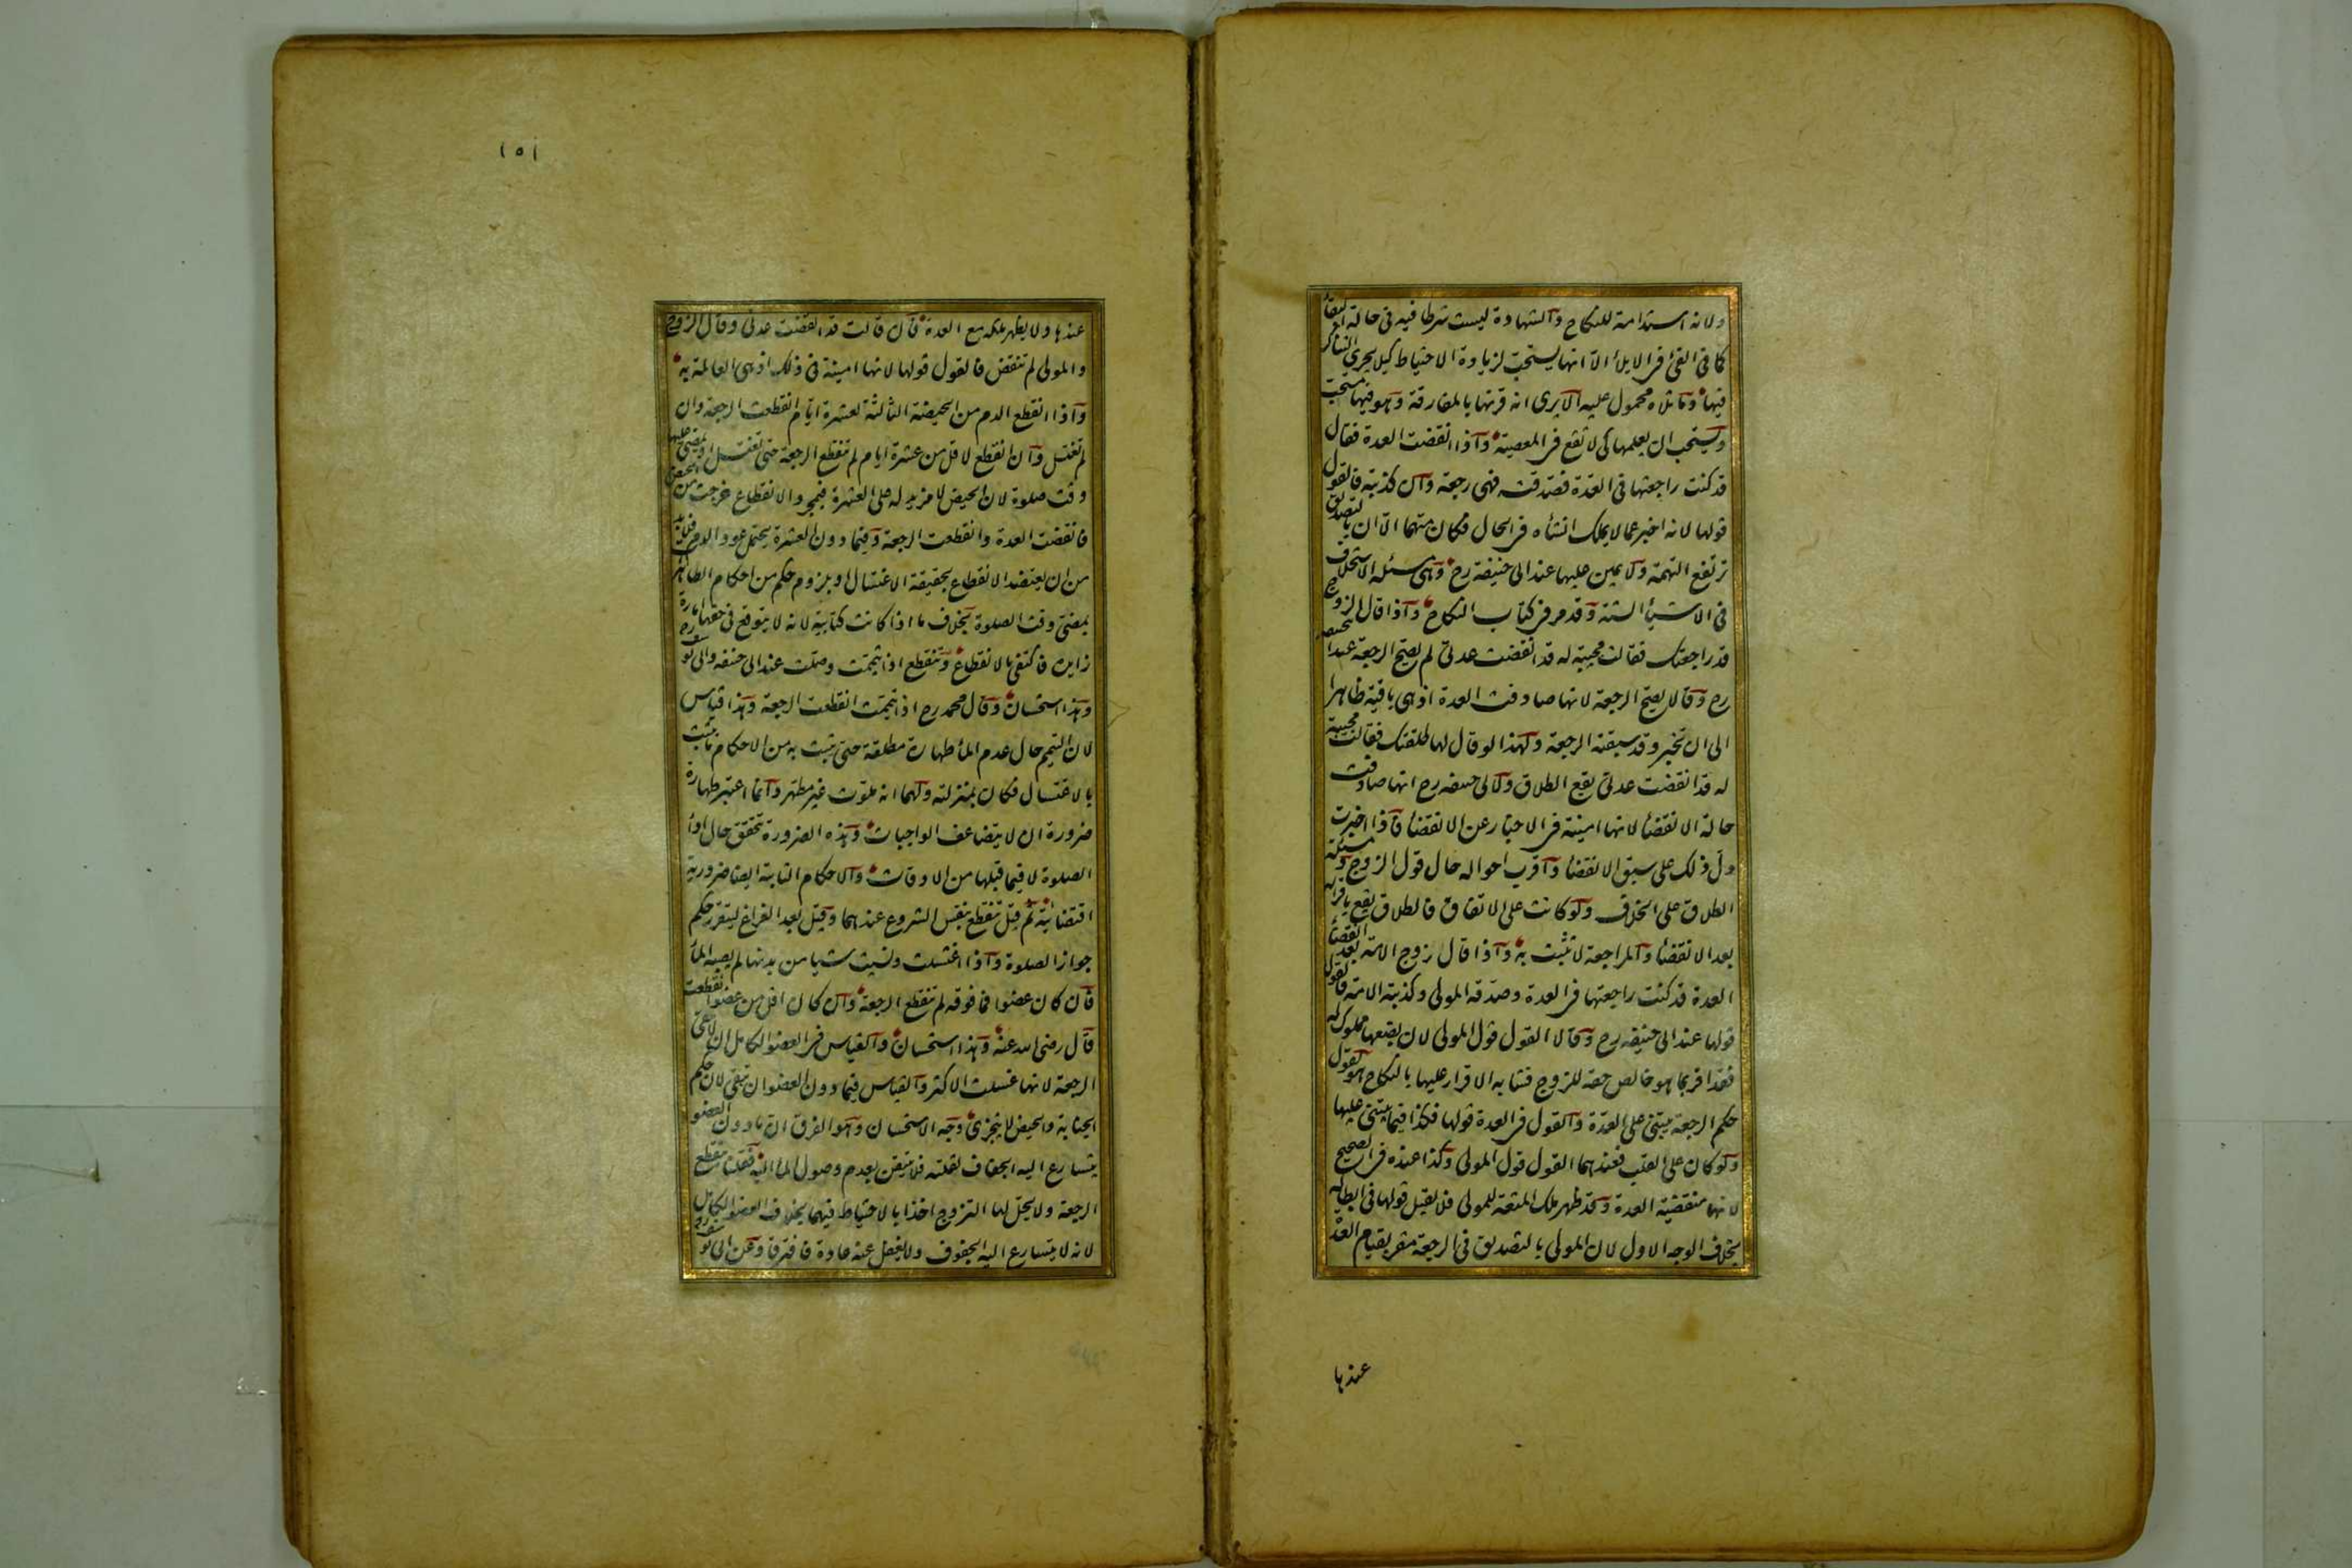 ولانه استدامة للنكاح والشهادة ليست شرطا فيه فى حالة البقاء
كما فى الفئ فى الايلاء الا انها يستحب لزيادة الاحتياط كيلا يجرى التناكر
فيها وما تلاه محمول عليه الا يرى انه قرنها بالمفارقة وهو فيها مستحب
ويستحب ان يعلمها كى لا تقع فى المعصية واذا انقضت العدة فقال
قد كنت راجعتها فى العدة فصدقته فهى رجعة وان كذبته فالقول
قولها لانه اخبر عما لا يملك انشاه فى الحال فكان متهما الا ان بالتصديق
ترتفع التهمة ولا يمين عليها عند ابى حنيفة رح وهى مسئلة الاستحلاف
فى الاشياء الستة وقد مر فى كتاب النكاح واذا قال الزوج
قد راجعتك فقالت مجيبة له قد انقضت عدتى لم يصح الرجعة عند ابى حنيفة
رح وقالا يصح الرجعة لانها صادفت العدة اذ هى باقية ظاهرا
الى ان تخبر وقد سبقته الرجعة ولهذا لو قال لها طلقتك فقالت مجيبة
له قد انقضت عدتى يقع الطلاق ولابى حنيفه رح انها صادفت
حالة الانقضاء لانها امينة فى الاخبار عن الانقضاء فاذا اخبرت
دل ذلك على سبق الانقضاء واقرب احواله حال قول الزوج ومسئلة
الطلاق على الخلاف ولو كانت على الاتفاق فالطلاق يقع باقراره
بعد الانقضاء والمراجعة لا تثبت به واذا قال زوج الامة بعد انقضاء
العدة قد كنت راجعتها فى العدة وصدقه المولى وكذبته الامة فالقول
قولها عند ابى حنيفه رح وقالا القول قول المولى لان بضعها مملوك له
فقد اقر بما هو خالص حقه للزوج فشابه الاقرار عليها بالنكاح هو يقول
حكم الرجعة يبتنى على العدة والقول فى العدة قولها فكذا فيما يبتنى عليها
ولو كان على القلب فعندهما القول قول المولى وكذا عنده فى الصحيح
لانها منقضية العدة وقد ظهر ملك المتعة للمولى فلا يقبل قولها فى ابطاله
بخلاف الوجه الاول لان المولى بالتصديق فى الرجعة مقر بقيام العدة
عندها
١٥١
عندها ولا يظهر ملكه مع العدة فان قالت قد انقضت عدتى وقال الزوج
والمولى لم تنقض فالقول قولها لانها امينة فى ذلك اذ هى العالمة به
واذا انقطع الدم من الحيضة الثالثة لعشرة ايام انقطعت الرجعة وان
لم تغتسل وان انقطع لاقل من عشرة ايام لم تنقطع الرجعة حتى تغتسل او يمضى عليها
وقت صلوة لان الحيض لا مزيد له على العشرة فبمجرد الانقطاع خرجت من الحيض
فانقضت العدة وانقطعت الرجعة وفيما دون العشرة يحتمل عود الدم فلا بد
من ان يعتضد الانقطاع بحقيقة الاغتسال او بلزوم حكم من احكام الطاهر
بمضى وقت الصلوة بخلاف ما اذا كانت كتابية لانه لا يتوقع فى حقها امارة
زايدة فاكتفى بالانقطاع وتنقطع اذا تيممت وصلت عند ابى حنيفه وابى يوسف رح
وهذا استحسان وقال محمد رح اذا تيممت انقطعت الرجعة وهذا قياس
لان التيمم حال عدم الماء طهارة مطلقة حتى يثبت به من الاحكام ما يثبت
بالاغتسال فكان بمنزلته ولهما انه ملوث غير مطهر وانما اعتبر طهارة
ضرورة ان لا يتضاعف الواجبات وهذه الضرورة تتحقق حال اداء
الصلوة لا فيما قبلها من الاوقات والاحكام الثابتة ايضا ضرورية
اقتضائية ثم قيل تنقطع بنفس الشروع عندهما وقيل بعد الفراغ ليتقرر حكم
جواز الصلوة واذا اغتسلت ونسيت شيا من بدنها لم يصبه الماء
فان كان عضوا فما فوقه لم تنقطع الرجعة وان كان اقل من عضو انقطعت
قال رضى الله عنه وهذا استحسان والقياس فى العضو الكامل ان لا تبقى
الرجعة لانها غسلت الاكثر والقياس فيما دون العضو ان تبقى لان حكم
الجنابة والحيض لا يتجزى وجه الاستحسان وهو الفرق ان ما دون العضو
يتسارع اليه الجفاف لقلته فلا يتيقن بعدم وصول الماء اليه فقلنا تنقطع
الرجعة ولا يحل لها التزوج اخذا بالاحتياط فيهما بخلاف العضو الكامل
لانه لا يتسارع اليه الجفوف ولا يغفل عنه عادة فافترقا وعن ابى يوسف رح